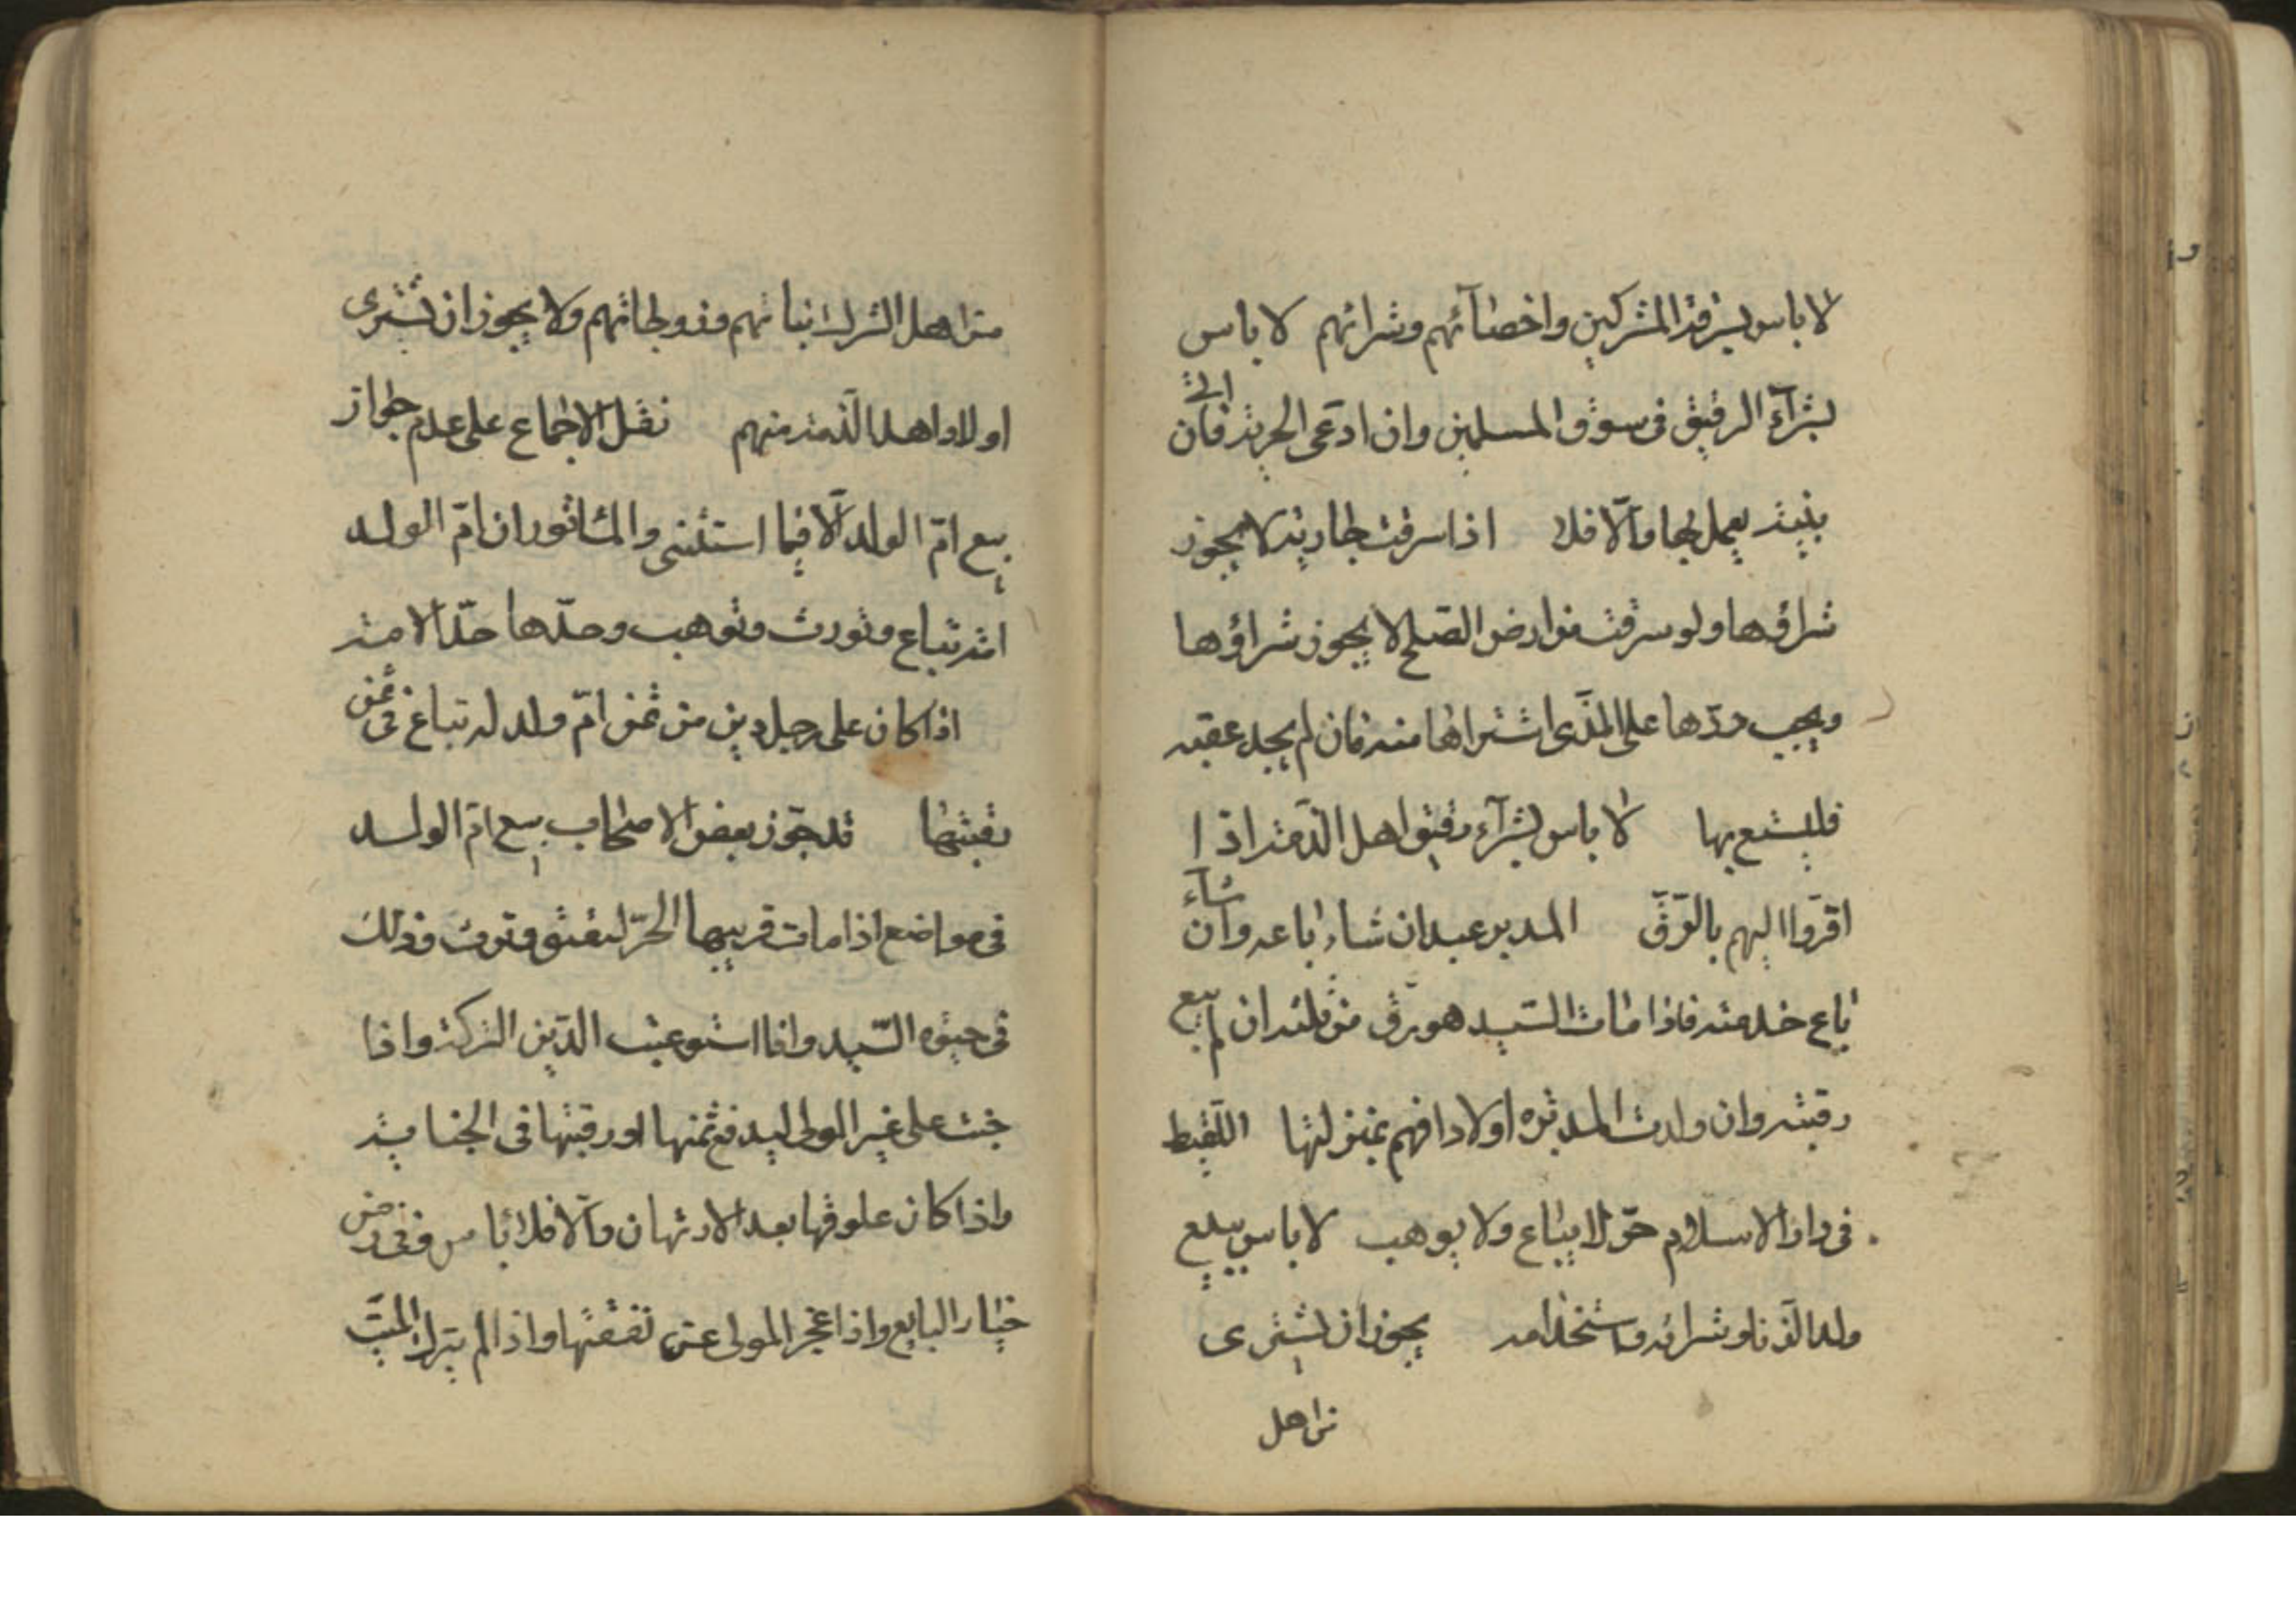 لا باس بسرقة المشركين واخصآئهم وشرائهم لا باس
بشرآء الرقيق فى سوق المسلمين وان ادعى الحرية فان اتى
ببينة يعمل بها والّا فلا اذا سرقت جارية لا يجوز
شراؤها ولو سرقت من ارض الصلح لا يجوز شراؤها
ويجب ردّها على الذى اشتراها منه فان لم يجد عقبه
فليستسع بها لا باس بشرآء رقيق اهل الذّمة اذا
اقرّوا اليهم بالرّقّ المدبر عبد ان شاء باعه وان شآء
باع خدمته فاذا مات السّيد هو رقّ من ثلثه ان لم يبع
رقبته وان ولدت المدبره اولادا فهم بمنزلتها اللّقيط
فى دار الاسلام حرّ لا يباع ولا يوهب لا باس ببيع
ولد الزنا وشرائه واستخدامه يجوز ان يشترى
من اهل
من اهل الشرك ابناءهم وزوجاتهم ولا يجوز ان يشترى
اولاد اهل الذّمة منهم نقل الاجماع على عدم جواز
بيع امّ الولد الّا فيما استثنى والمأثور ان امّ الولد
امة تباع وتورث وتوهب وحدّها حدّ الامة
اذا كان على رجل دين من ثمن امّ ولد له تباع فى ثمن
رقبتها قد جوّز بعض الاصحاب بيع امّ الولد
فى مواضع اذا مات قريبها الحرّ لتعتق وترث وذلك
فى حيوة السّيد واذا استوعب الدّين التركة واذا
جنت على غير المولى ليدفع ثمنها او رقبتها فى الجناية
واذا كان علوقها بعد الارتهان والّا فلا باس وفى زمن
خيار البايع واذا عجز المولى عن نفقتها واذا لم يترك الميّت